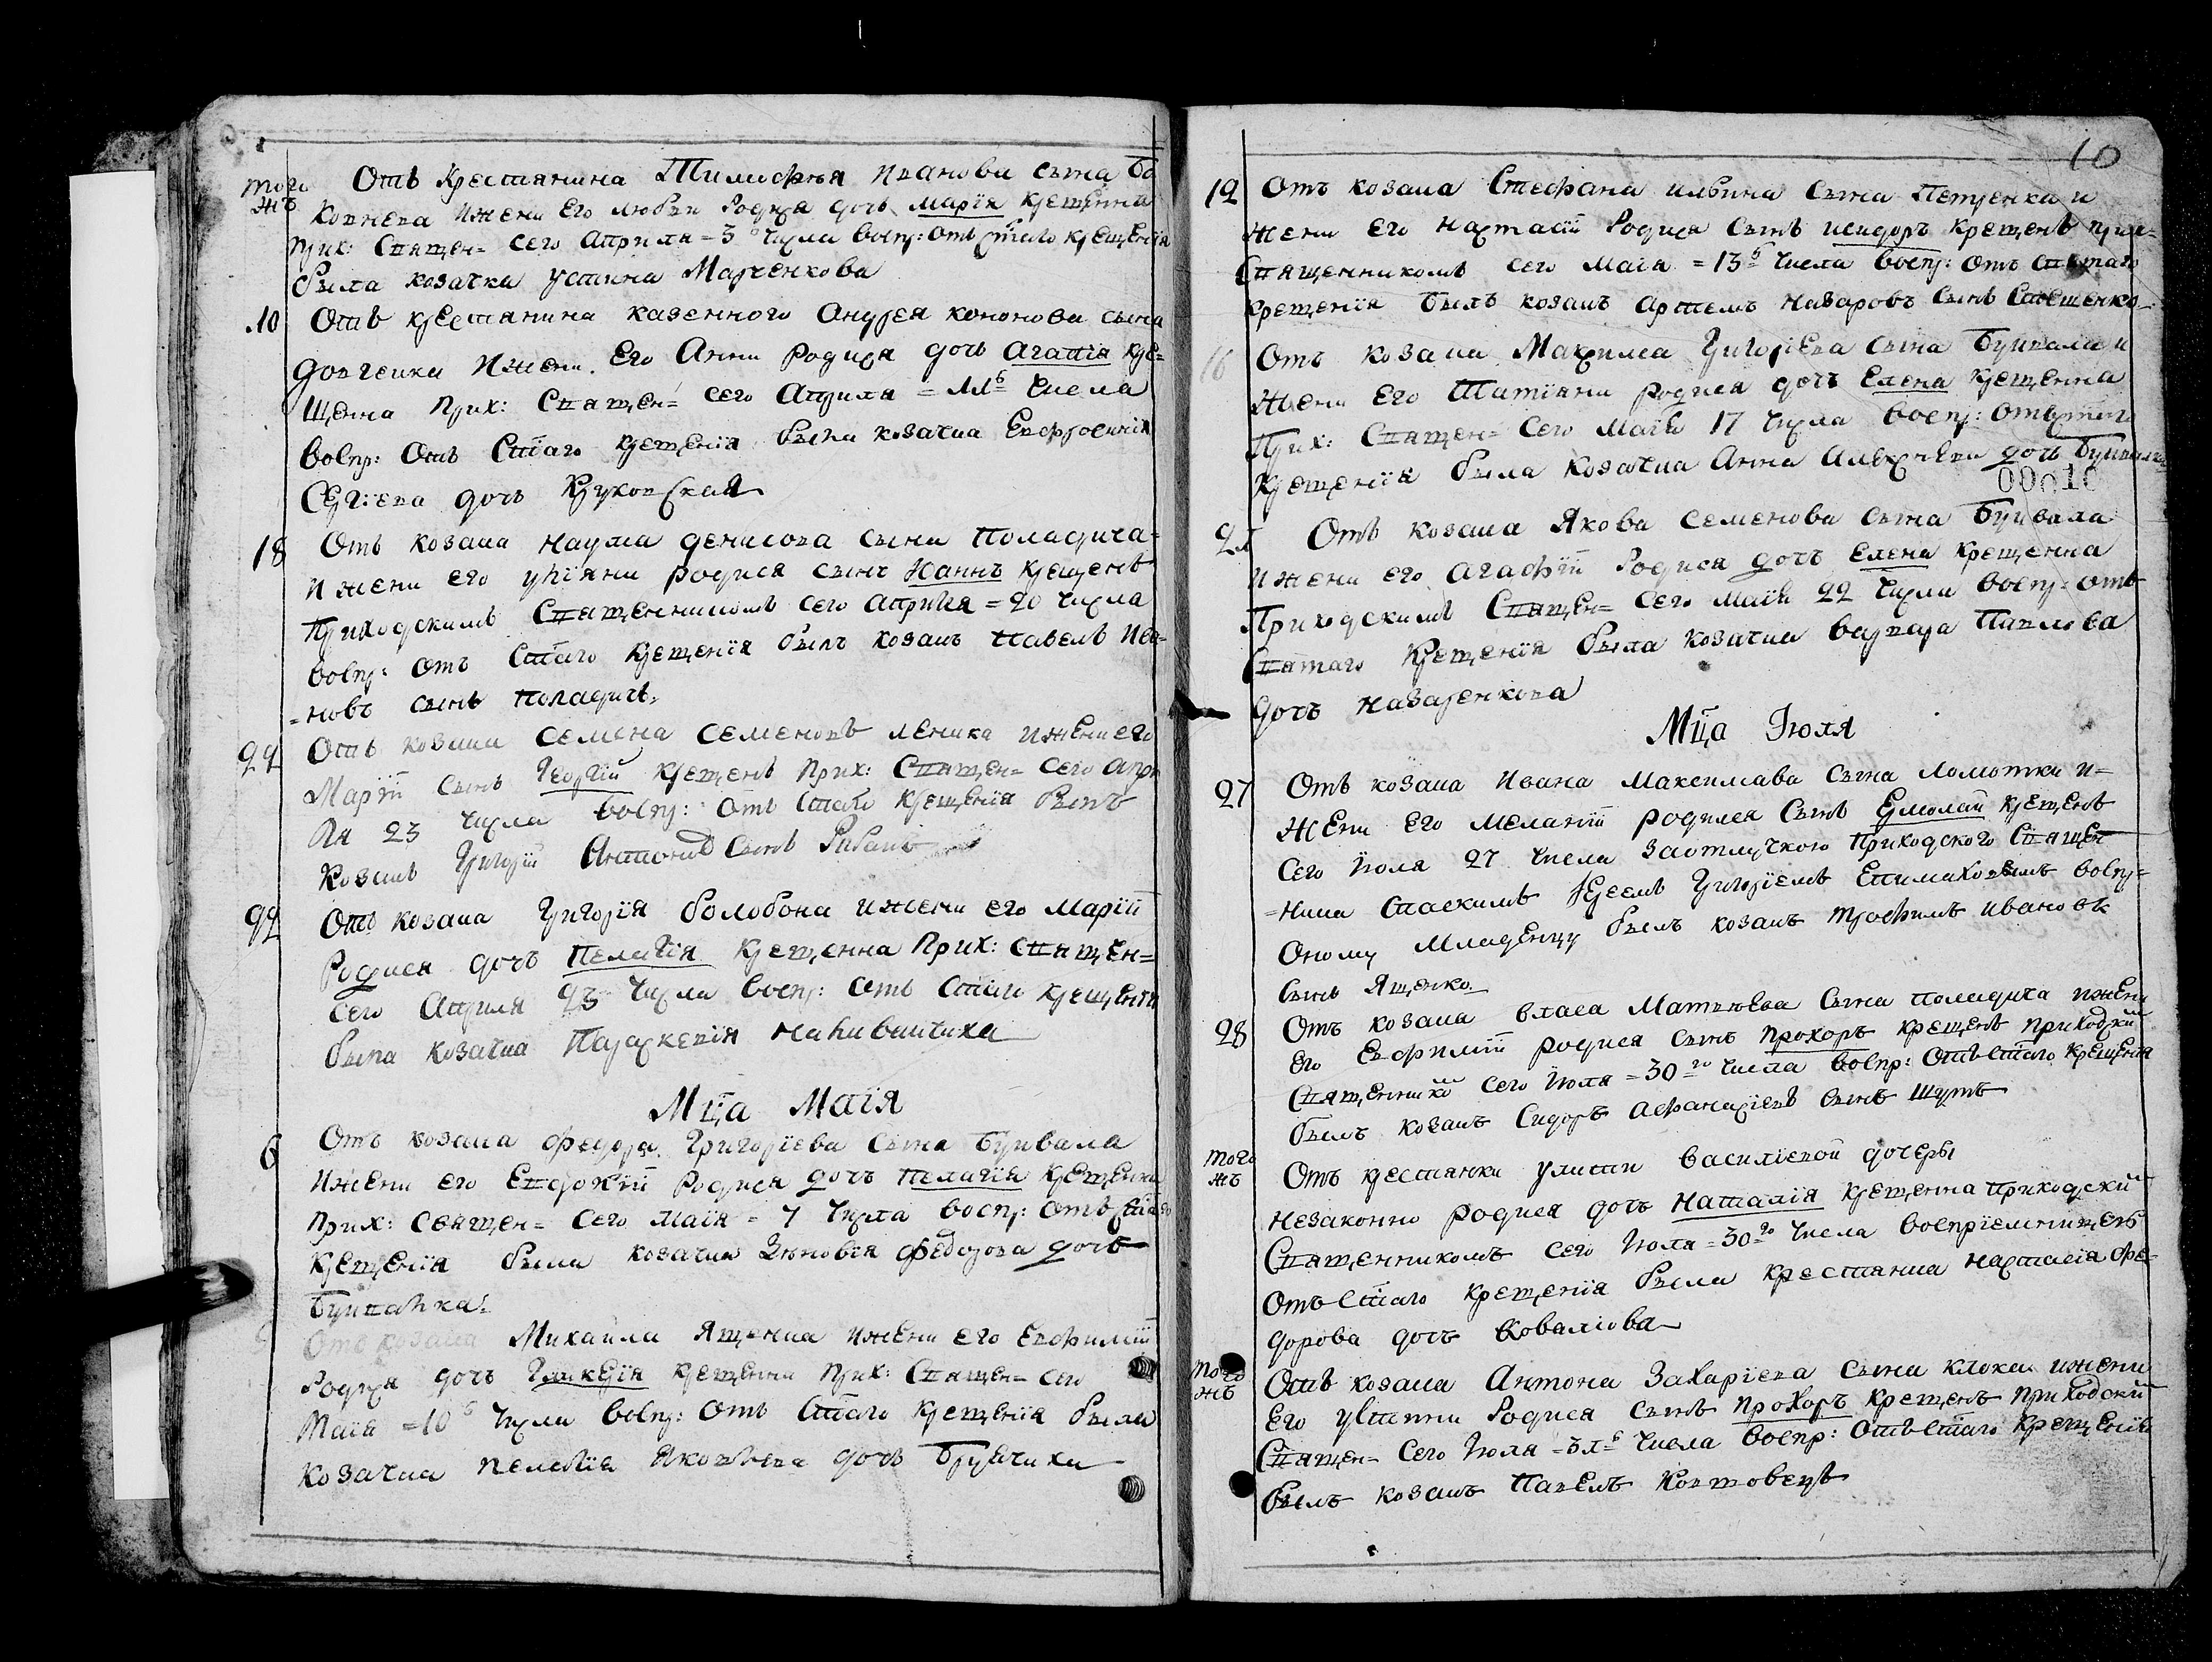 того жъ Отъ крестянина Тимофея Иванова сына Бо
ковнева ижени его любви родися дочь марія крещенна
прих: священ= сего Априля = 3 числа воспр: отъ стаго крещенія
была козачка устина Марченкова
10 Отъ крестянина казенного Андрея кононова сына
довгенки ижени его Анни родися дочь агапія кре=
щенна прих: священ= сего Априля = 11 числа
воспр: отъ стаго крещенія была козачка Евфросинія
Сергіева дочъ Круковская
18 Отъ козака наума денисова сына поладича=
ижени его уліяни родися сынъ Іоаннъ крещенъ
приходскимъ священникомъ сего априля = 20 числа
воспр: отъ стаго крещенія былъ козакъ павелъ Ива=
=новъ сынъ поладичъ.
22 Отъ козака семена семеновъ леника ижени его
Маріи сынъ Георгій крещенъ прих: священ= сего апри
ля 23 числа воспр: отъ стаго крещенія былъ
козакъ Григорій Антоновъ сынъ Рибакъ
22 Отъ козака Григорія болобона ижени его маріи
родися дочъ пелагія крещенна прих: священ=
сего Априля 23 числа воспр: отъ стаго крещенія
была козачка Параскевія
Мца Маія
6 Отъ козака федора Григоріева сына Бувала
ижени его Евдокіи родися дочъ пелагія крещенна
прих: священ= сего маія = 7 числа воспр: отъ стаго
крещенія была козачка Зѣновія федорова дочъ
Отъ козака Михаила Ященка ижени его Евфиміи
родися дочъ Гликерія крещенна прих: священ= сего
маія = 10 числа воспр: отъ стаго крещенія была
козачка пелагія Яковлева дочъ
10
12 Отъ козака Стефана ильина сына Петренка и
жени его настасіи родися сынъ исидоръ крещенъ прих=
священникомъ сего маія = 13 числа воспр: отъ святаго
крещенія былъ козакъ артемъ назаровъ сынъ
16 Отъ козака Максима Григоріева сына Бувала и
жени его татіяни родися дочъ елена крещенна
прих: священ= сего маія 17 числа воспр: отъ стаго
крещенія была козачка Анна Алексѣева дочъ
00010
21 Отъ козака Якова семенова сына Бувала
ижени его агафіи родися дочъ елена крещенна
приходскимъ священ= сего маія 22 числа воспр: отъ
святаго крещенія была козачка варвара павлова
дочъ назаренкова
Мца Іюля
27 Отъ козака Ивана максимава сына ломотки и=
жени его меланіи родился сынъ Ермолай крещенъ
сего Іюля 27 числа заотлучкого приходского священ
=ника спаскимъ Іереемъ Григоріемъ воспр=
оному младенцу былъ козакъ трофимъ ивановъ
сынъ Ященко
28 Отъ козака власа Матвѣева сына поладича ижени
его Евфиміи родися сынъ прохоръ крещенъ приходски
священнико сего Іюля = 30го числа воспр: отъ стаго крещенія
былъ козакъ Сидоръ Афанасіевъ сынъ
того жъ Отъ крестянки улити василіевой дочеры
незаконно родися дочъ наталія крещенна приходски
священникомъ сего Іюля = 30го числа воспріемницею
отъ стаго крещенія была крестянка настасія фе=
дорова дочъ Ковалiова
того жъ Отъ козака Антона Захаріева сына клока ижени
его устини родися сынъ прохоръ крещенъ приходски
священ= сего Іюля = 31 числа воспр: отъ стаго крещенія
былъ козакъ павелъ